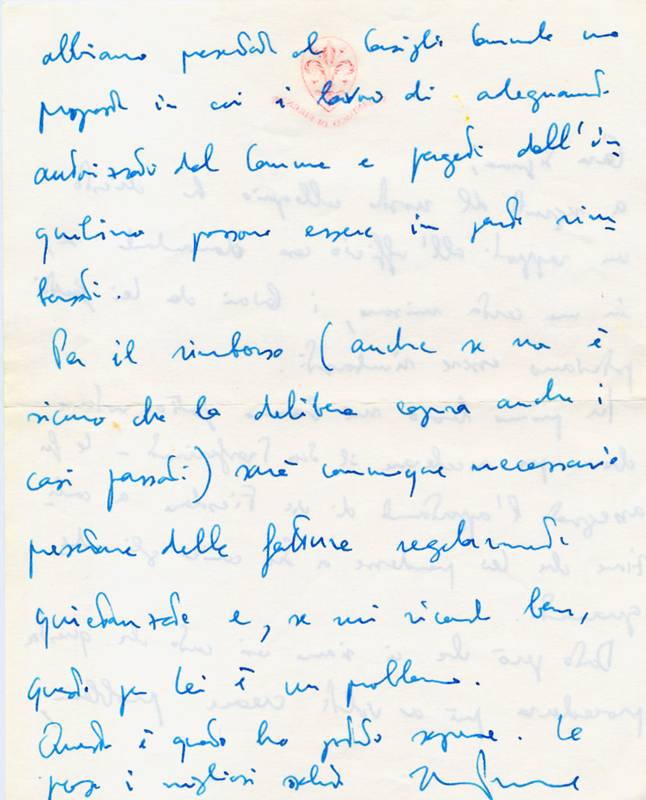 abbiamo presentato al Consiglio Comunale una
proposta in cui i lavori di adeguamento
autorizzati dal Comune e pagati dall'in
quilino possono essere in parte rim
borsati.
Per il rimborso (anche se non è
sicuro che la delibera copra anche i
casi passati) sarà comunque necessario
presentare delle fatture regolarmente
quietanzate e, se mi ricordo bene,
questo per lei è un problema.
Questo è quanto ho potuto sapere. Le
porgo i migliori saluti